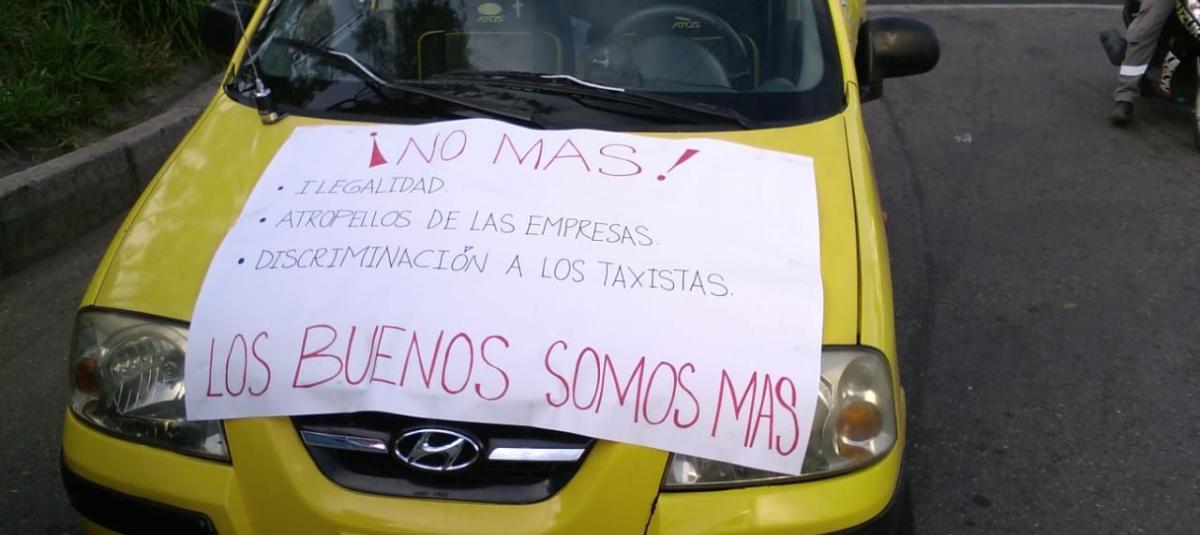 ATOS
ATOS
¡NO MAS!
• ILEGALIDAD.
• ATROPELLOS DE LAS EMPRESAS.
• DISCRIMINACIÓN A LOS TAXISTAS.
LOS BUENOS SOMOS MAS